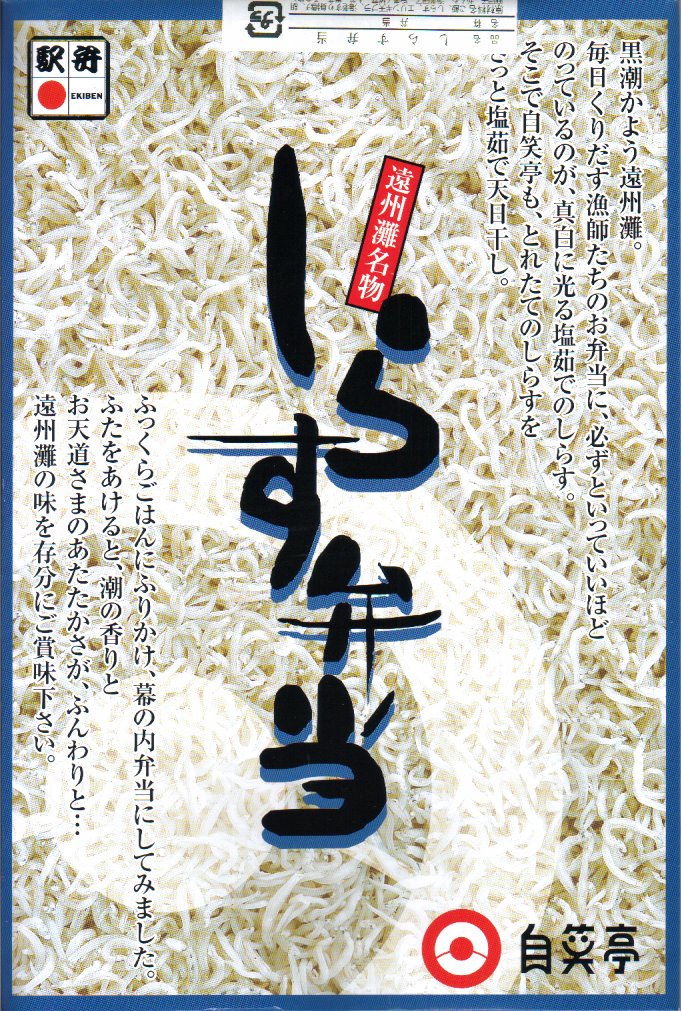 駅弁
EKIBEN
プラ
品名 しらす弁当
名称 弁当
黒潮かよう遠州灘。
毎日くりだす漁師たちのお弁当に、必ずといっていいほど
のっているのが、真白に光る塩茹でのしらす。
そこで自笑亭も、とれたてのしらすを
さっと塩茹で天日干し。
遠州灘名物
しらす弁当
ふっくらごはんにふりかけ、幕の内弁当にしてみました。
ふたをあけると、潮の香りと
お天道さまのあたたかさが、ふんわりと…
遠州灘の味を存分にご賞味下さい。
自笑亭